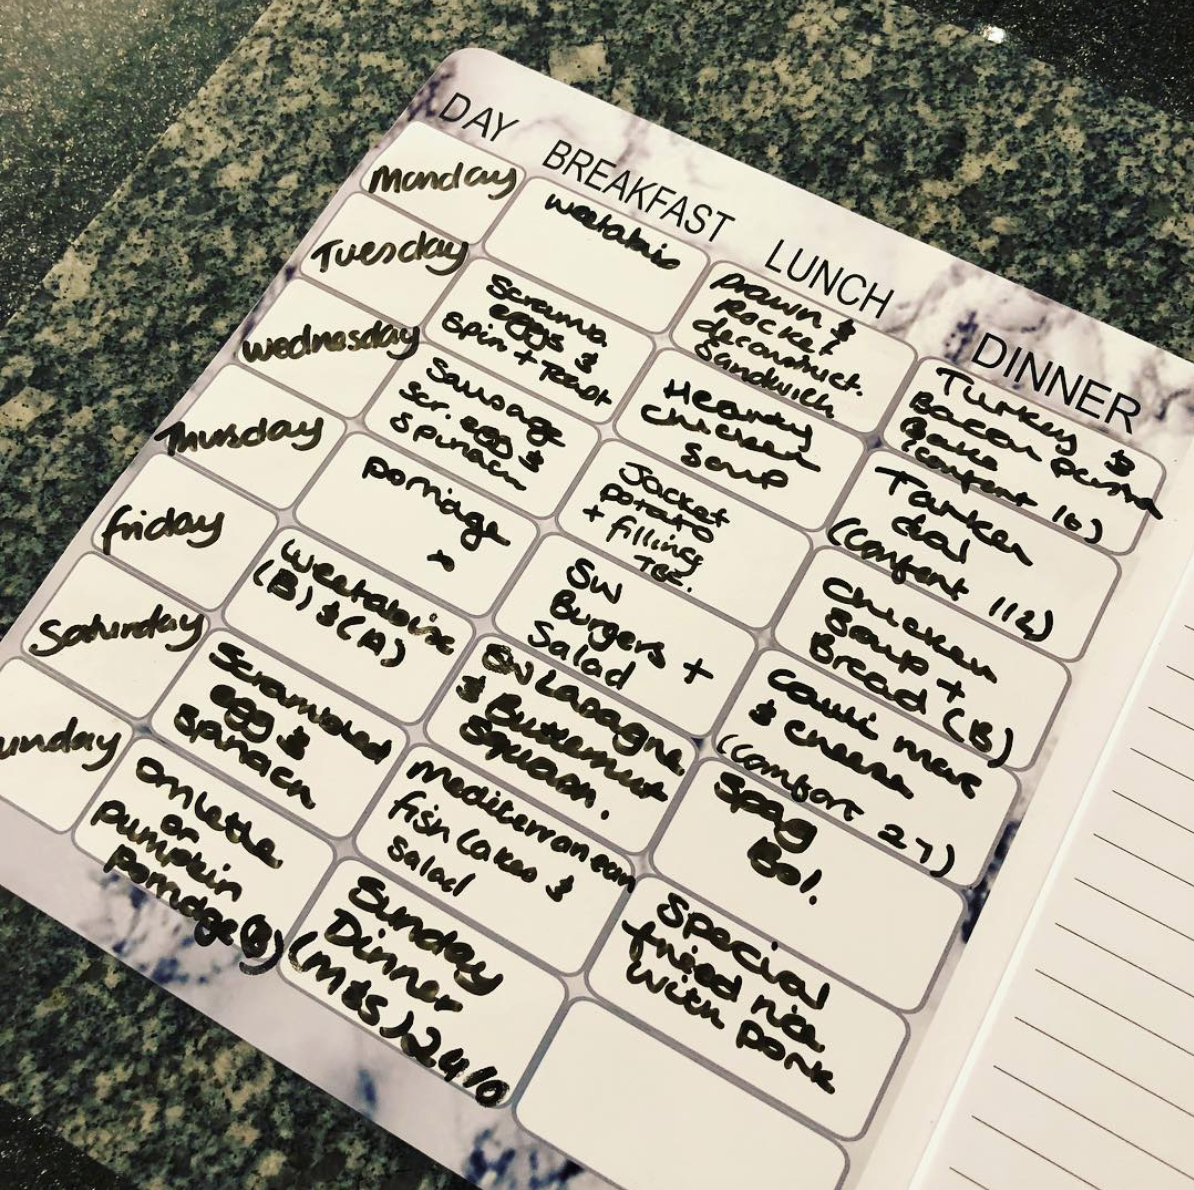 DAY BREAKFAST LUNCH DINNER
Monday
weetabix
Prawn &
Rocket
deconstruct.
Sandwich
Turkey &
Bacon
Bake
(comfort 16)
Tuesday
Scramb
eggs &
Spin + Toast
Hearty
chicken
Soup
Tarker
dal
(comfort 112)
wednesday
Sausage
scr. egg &
Spinach
Jacket
potato
+ filling
TBC.
chicken
Soup +
Bread (B)
Thursday
porriage
SW
Burgers +
Salad
cauli mac
& cheese
(comfort 27)
friday
weetabix
(B) & (A)
SW Lasagne
& Butternut
Squash.
Spag
Bol.
Saturday
Scrambled
egg &
Spinach
Mediterranean
fish cakes &
Salad
Special
fried rice
with pork
unday
omlette
or
pumpkin
Porridge (B)
Sunday
Dinner
(M&S) 24/10